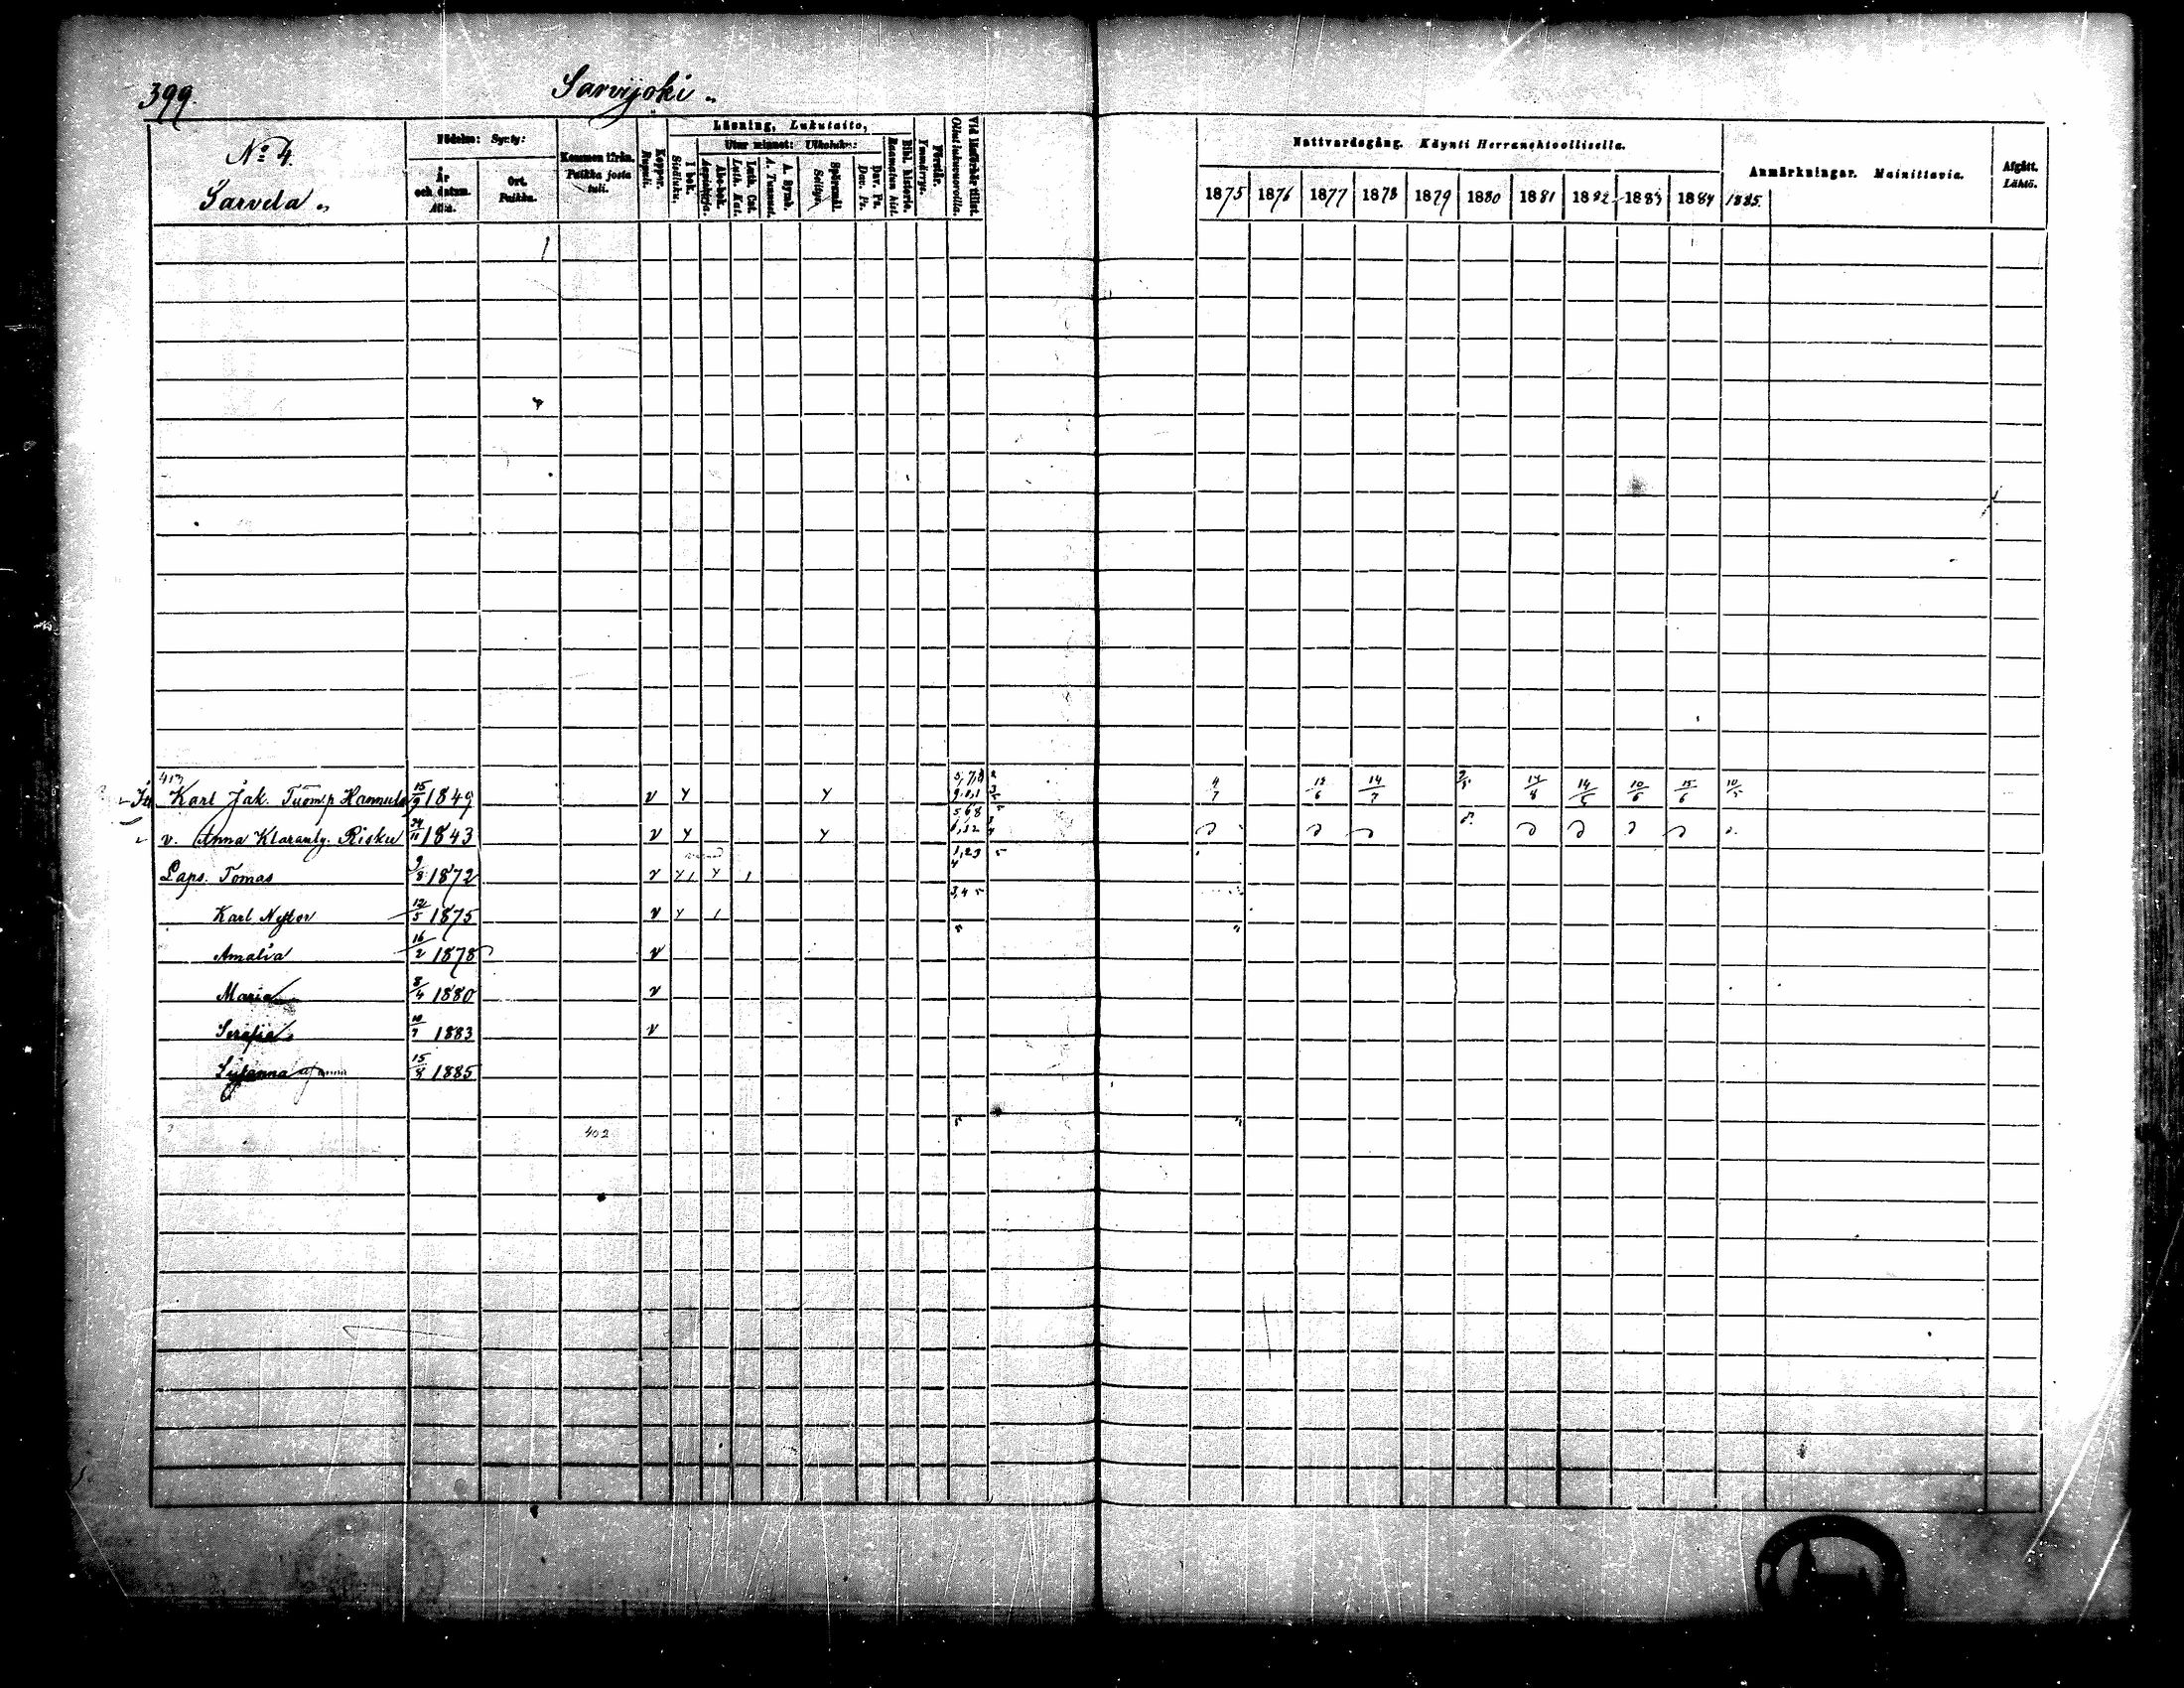 399.
Sarvijoki
No 4.
Sarvela
Födelse: Synty:
År och datum. Aika.
Ort. Paikka.
Kommen ifrån. Paikka josta tuli.
Koppor. Rupuli.
Läsning, Lukutaito,
I bok. Sisäluku.
Utur minnet: Ulkoluku:
Abc-bok. Aapiskirja.
Luth. Cat. Luth. Kat.
A. Symb. A. Tunnust.
Spörsmål. Selitys.
Dav. Ps. Dav. Ps.
Bibl. historie. Raamatun hist.
Förstår. Ymmärrys.
Vid läsförhör tillst. Ollut lukuvuoroilla.
Nattvardsgång. Käynti Herranehtoollisella.
1875 1876 1877 1878 1879 1880 1881 1882 1883 1884 1885.
Anmärkningar. Mainittavia.
Afgått. Lähtö.
413
Karl Jak. Tuom.p Hannula 15/9 1849 v y y 4/7 14/7 14/8 14/5 10/6 15/6 10/5
v. Anna Klarant. Risku 24/11 1843 v y y
Laps. Tomas 9/8 1872 v
3,4 5
Karl Nestor 12/5 1875 v y 1
Amalia 16/2 1878 v
Maria 8/4 1880 v
Serafia 1883 v
Susanna 15/8 1885
402